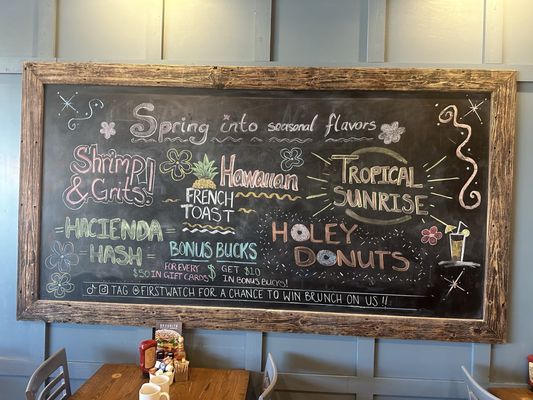 Spring into seasonal flavors
Shrimp
& Grits!
Hawaiian
FRENCH
TOAST
TROPICAL
SUNRISE
HACIENDA
HASH
BONUS BUCKS
FOR EVERY
$50 IN GIFT CARDS
$
GET $10
IN BONUS BUCKS!
HOLEY
DONUTS
TAG @FIRSTWATCH FOR A CHANCE TO WIN BRUNCH ON US!!